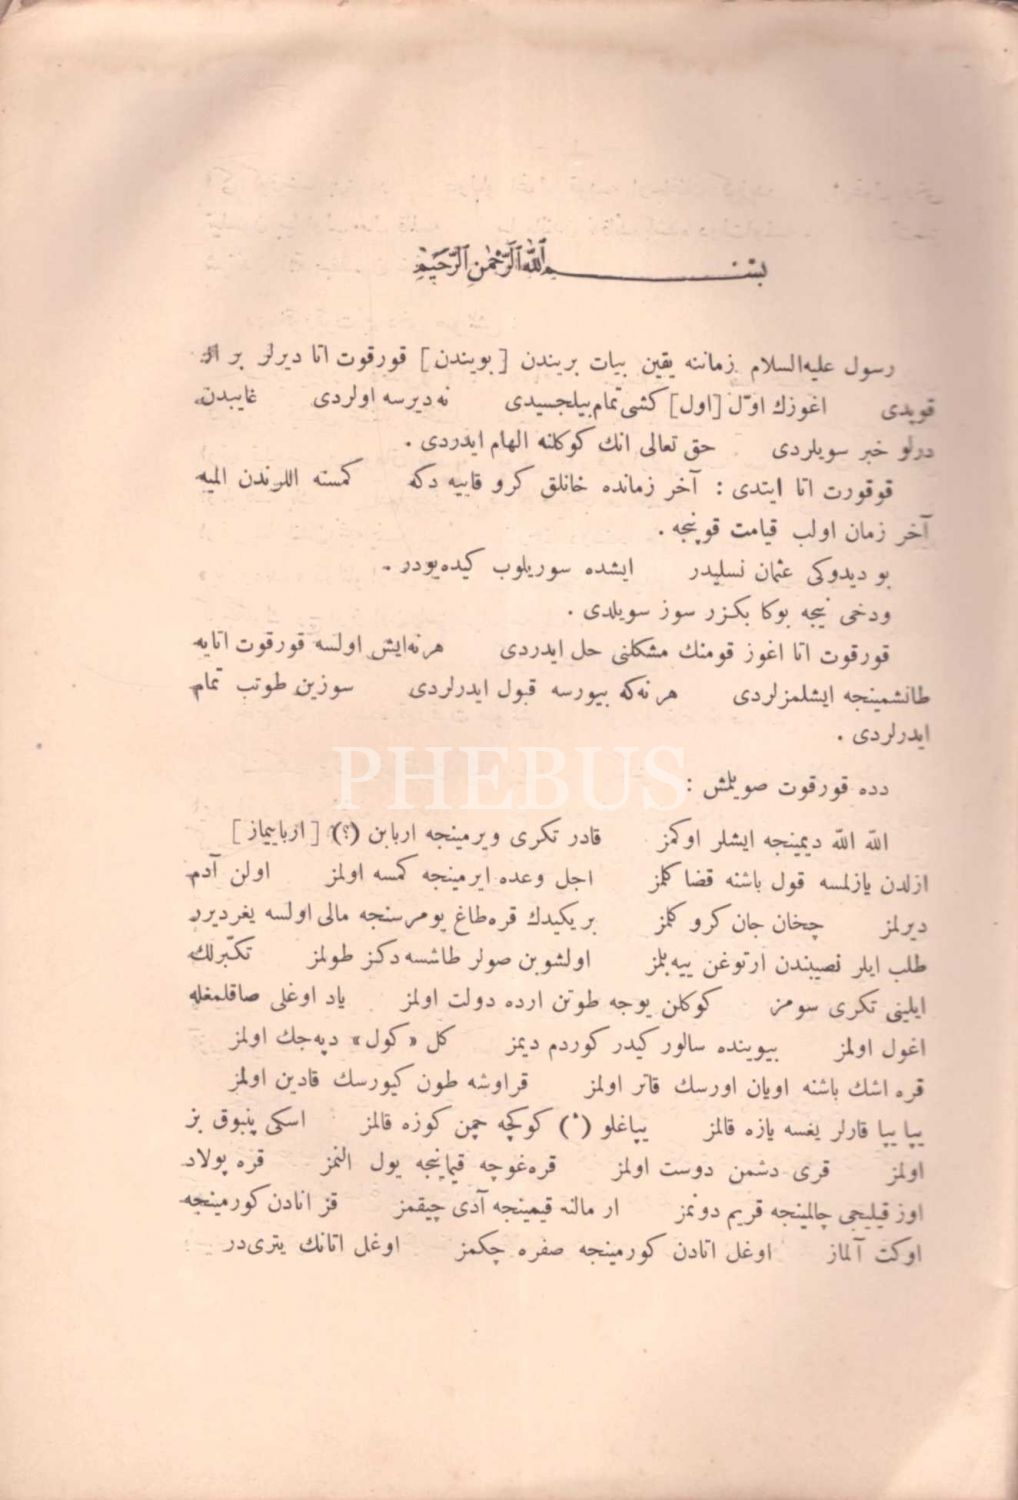 بسم الله الرحمن الرحيم
رسول عليه‌السلام زماننه يقين بيات بريندن [بويندن] قورقوت اتا ديرلر بر ار
قوپدى اغوزك اوّل [اول] كشى تمام بيلجسيدى نه ديرسه اولردى غايبدن
درلو خبر سويلردى حق تعالى انك كوكلنه الهام ايدردى .
قوقورت اتا ايتدى : آخر زمانده خانلق كرو قايیه دكه كمسنه اللرندن الميه
آخر زمان اولب قيامت قوپنجه .
بو ديدوكى عثمان نسليدر ايشده سوريلوب كيده‌يودر .
ودخى نيجه بوكا بكزر سوز سويلدى .
قورقوت اتا اغوز قومنك مشكلنى حل ايدردى هر نه‌ايش اولسه قورقوت اتايه
طانشمينجه ايشلمزلردى هر نه‌كه بيورسه قبول ايدرلردى سوزين طوتب تمام
ايدرلردى .
دده قورقوت صويلمش :
الله الله ديمينجه ايشلر اوكمز قادر تكرى ويرمينجه اربابن (؟) [ارباييماز]
ازلدن يازلمسه قول باشنه قضا كلمز اجل وعده ايرمينجه كمسه اولمز اولن آدم
ديرلمز چخان جان كرو كلمز بر يكيدك قره‌طاغ يومرسنجه مالى اولسه يغر ديرر
طلب ايلر نصيبندن ارتوغن ييه‌بلمز اولشوبن صولر طاشسه دكز طولمز تكبّرلك
ايلينى تكرى سومز كوكلن يوجه طوتن ارده دولت اولمز ياد اوغلى صاقلمغله
اغول اولمز بيوينده سالور كيدر كوردم ديمز كل «كول» دپه‌جك اولمز
قره اشك باشنه اويان اورسك قاتر اولمز قراوشه طون كيورسك قادين اولمز
يپا يپا قارلر يغسه يازه قالمز يپاغلو (°) كوكچه چمن كوزه قالمز اسكى پنبوق بز
اولمز قرى دشمن دوست اولمز قره‌غوچه قيمانيجه يول النمز قره پولاد
اوز قيليجى چالمينجه قريم دونمز ار مالنه قيمينجه آدى چيقمز قز انادن كورمينجه
اوكت آلماز اوغل اتادن كورمينجه صفره چكمز اوغل اتانك يترى‌در
PHEBUS